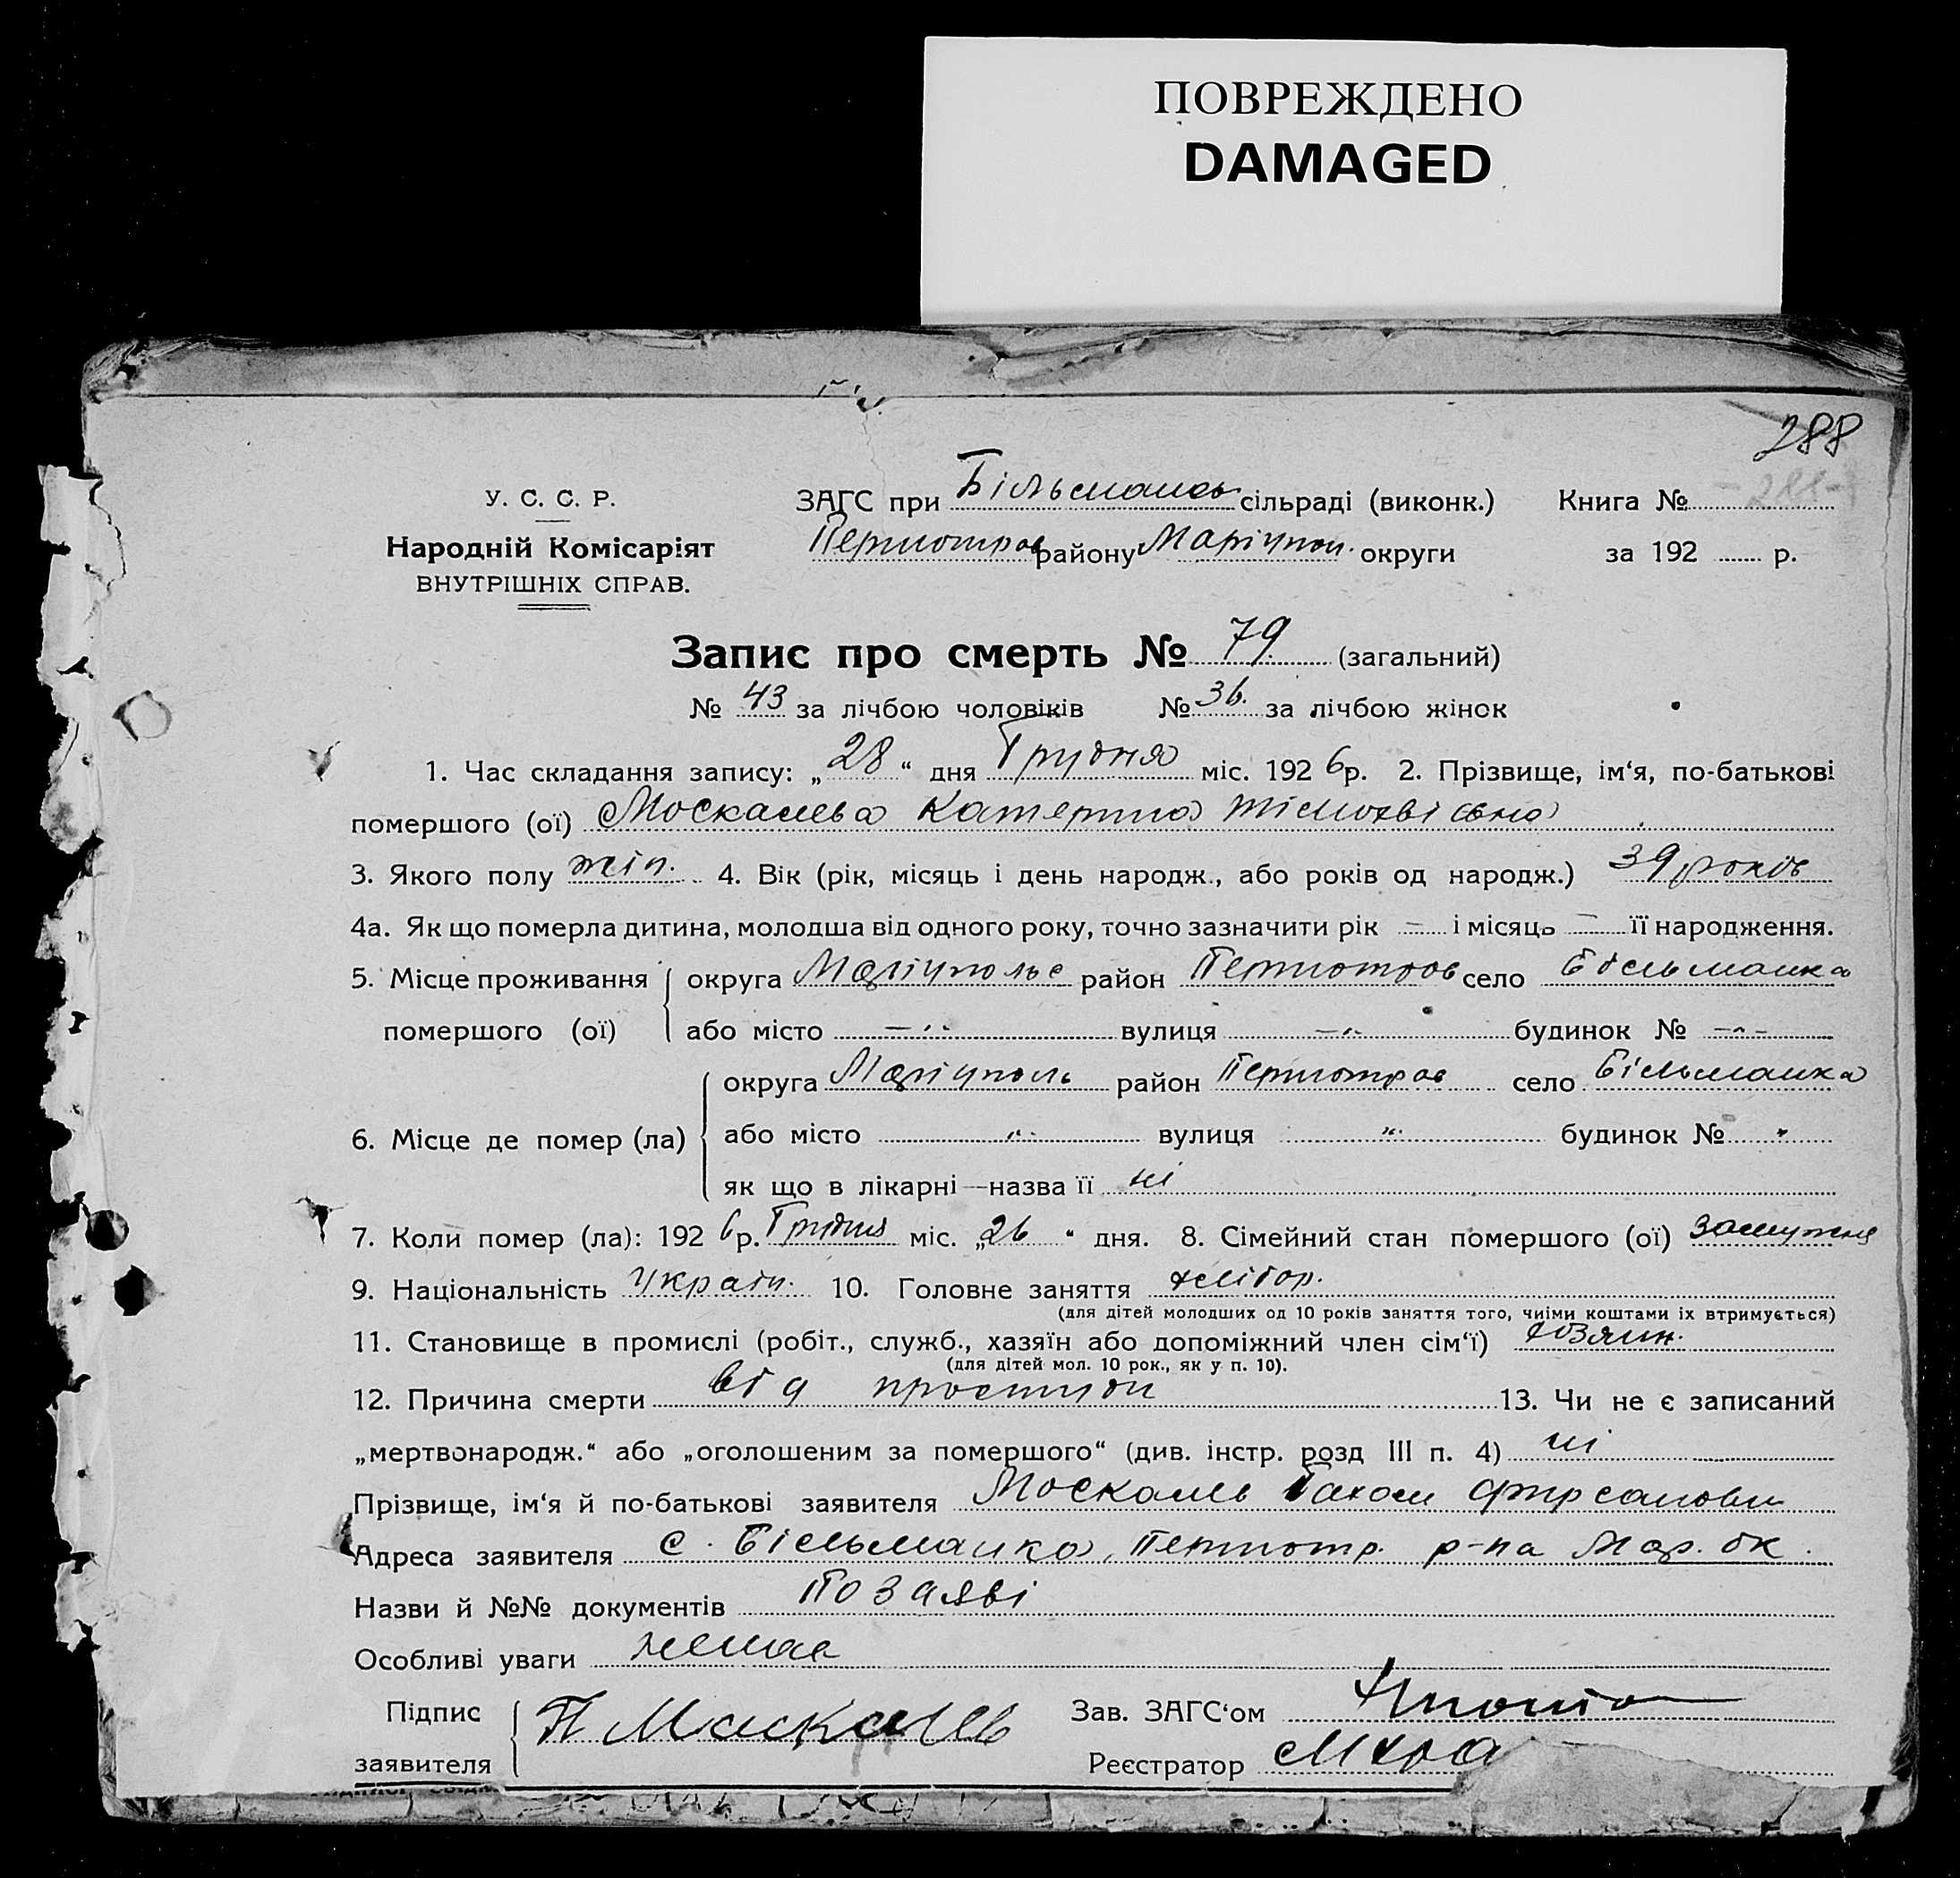 ПОВРЕЖДЕНО
DAMAGED
288
У. С. С. Р.
Народній Комісаріят
ВНУТРІШНІХ СПРАВ.
ЗАГС при Більмансь сільраді (виконк.)
Книга № -288-
Першотров району Маріупол. округи
за 192 р.
Запис про смерть № 79 (загальний)
№ 43 за лічбою чоловіків № 36. за лічбою жінок
1. Час складання запису: „28“ дня Грудня міс. 1926р. 2. Прізвище, ім‘я, по-батькові
помершого (ої) Москалева Катерина Тімохвієвна
3. Якого полу жін. 4. Вік (рік, місяць і день народж., або років од народж.) 39 років
4а. Як що померла дитина, молодша від одного року, точно зазначити рік – і місяць – її народження.
5. Місце проживання округа Маріупольс район Першотров село Більманка
помершого (ої) або місто —„— вулиця —„— будинок № —„—
округа Маріуполь район Першотров село Більманка
6. Місце де помер (ла) або місто „ вулиця „ будинок №
як що в лікарні—назва її ні
7. Коли помер (ла): 1926р. Грудня міс. „26“ дня. 8. Сімейний стан помершого (ої) замужня
9. Національність Україн. 10. Головне заняття хлібор.
(для дітей молодших од 10 років заняття того, чиїми коштами їх втримується)
11. Становище в промислі (робіт., служб., хазяїн або допоміжний член сім‘ї) хозяин.
(для дітей мол. 10 рок., як у п. 10).
12. Причина смерти від простуди 13. Чи не є записаний
„мертвонародж.“ або „оголошеним за помершого“ (див. інстр. розд III п. 4) ні
Прізвище, ім‘я й по-батькові заявителя Москалев Пахом Фирсанови
Адреса заявителя с. Більманка, Першотр. р-на Мар. ок.
Назви й №№ документів по заяві
Особливі уваги немає
Підпис П Маскалев Зав. ЗАГС‘ом
заявителя Реєстратор